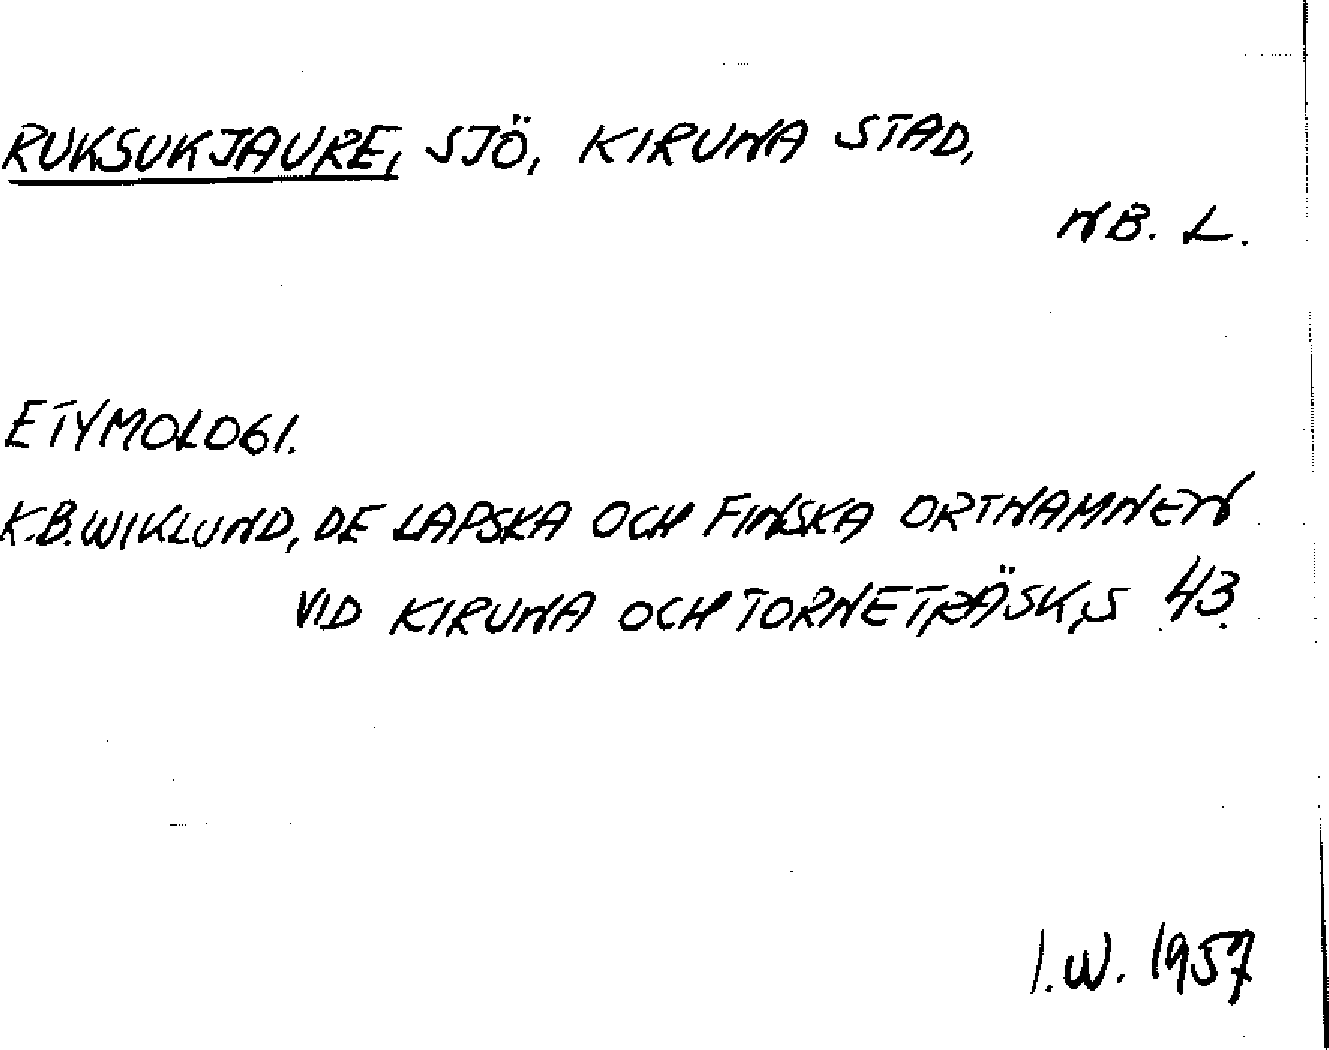 RUKSUKJAURE, SJÖ, KIRUNA STAD,
NB. L.
ETYMOLOGI.
K.B. WIKLUND, DE LAPSKA OCH FINSKA ORTNAMNEN
VID KIRUNA OCH TORNETRÄSK, S 43.
I.W. 1957